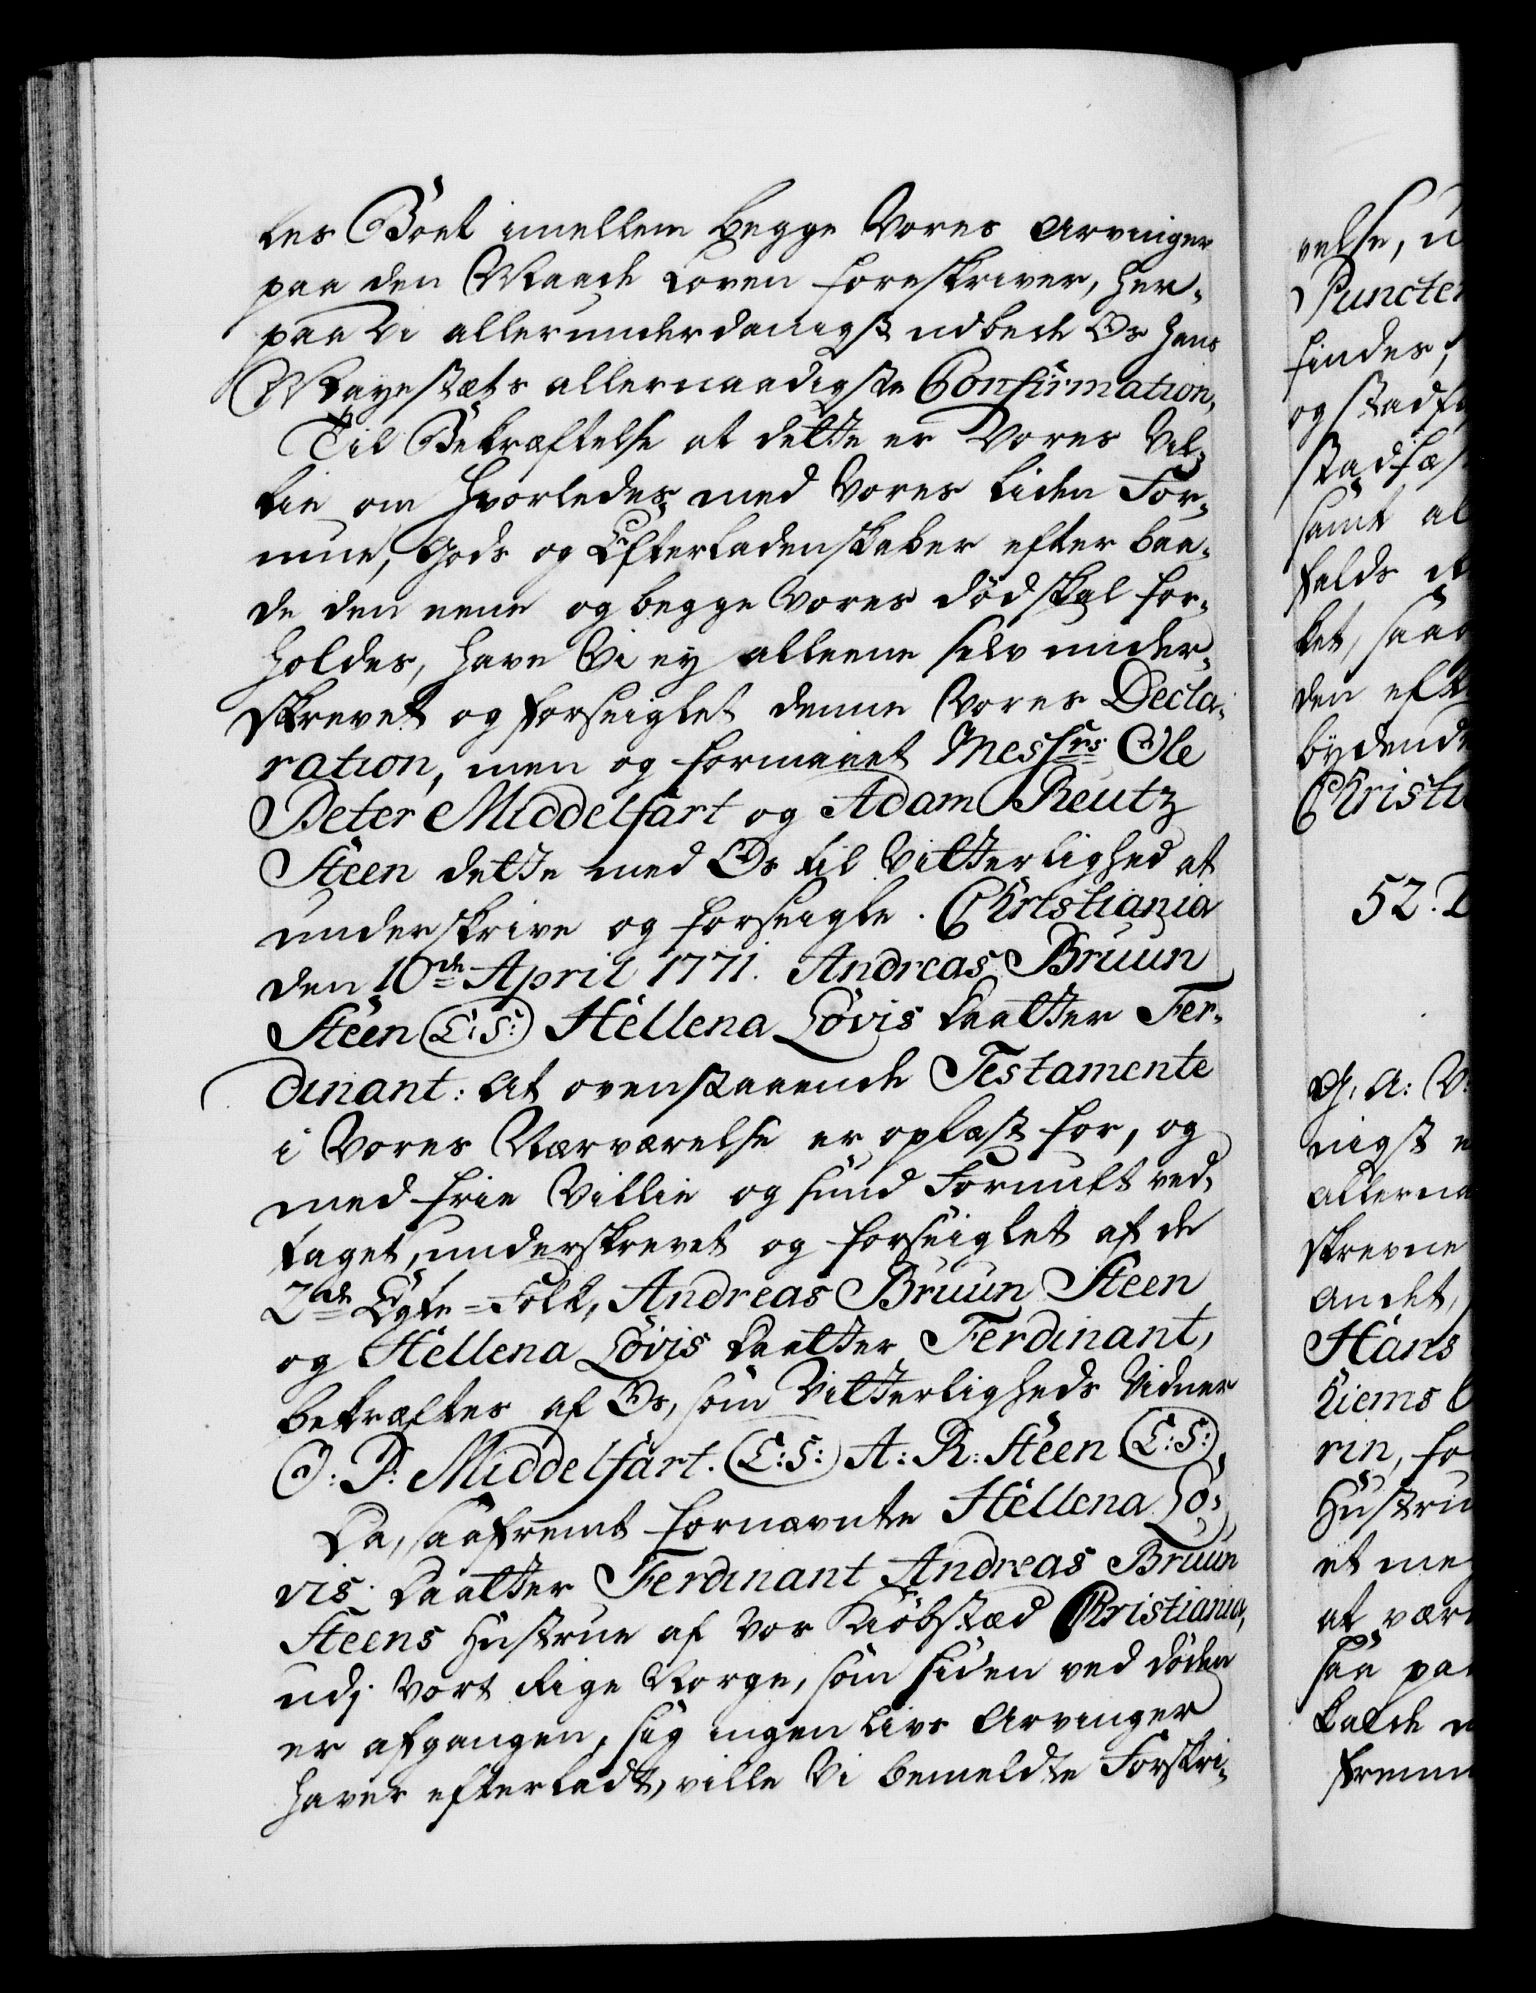 les Boet imellem begge Vores Arvinger
paa den Maade Loven foreskriver, her-
paa Vi allerunderdanigst udbede Os Hans
Mayestæts allernaadigste Confirmation,
Til Bekræftelse at dette er Vores Vil-
lie om hvorledes med Vores liden For-
mue, Gods og Efterladenskaber efter baa-
de den eene og begge Vores død skal for-
holdes, have Vi ey alleene selv under-
skrevet og forseiglet denne Vores Decla-
ration, men og formaaet Messrs Ole
Peter Middelfart og Adam Reutz
Steen dette med Os til Vitterlighed at
underskrive og forseigle. Christiania
den 10de April 1771. Andreas Bruun
Steen (L:S:) Hellena Lovis Daatter Fer-
dinant: At ovenstaaende Testamente
i Vores Nærværelse er oplæst for, og
med frie Villie og sund Fornuft ved-
taget, underskrevet og forseiglet af de
2de Egte-Folk, Andreas Bruun Steen
og Hellena Lovis Daatter Ferdinant,
bekræftes af Os, som Vitterligheds Vidner
O: P: Middelfart. (L:S:) A: R: Steen (L:S:)
Da, saafremt fornævnte Hellena Lo-
vis Daatter Ferdinant Andreas Bruun
Steens Hustrue af Vor Kiøbstæd Christiania,
udj Vort Rige Norge, som siden ved døden
er afgangen, sig ingen Livs Arvinger
haver efterladt, ville Vi bemeldte Forskri-
velse, u
Puncter
findes,
og stadf
stadfæs
samt al
falds
let, saa
den eft
bydende
Christi
52. D
G: A: V:
nigst
allerna
skrevne
andet,
Hans
hiems
rin, fo
Hustru
et me
at vær
saa pa
kalde
fremm